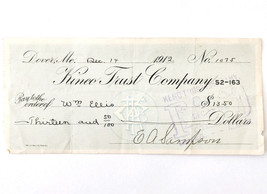 Dover, Me. Dec. 14 1912 No. 1075
Kineo Trust Company 52-163
Pay to the order of Wm Ellis $13.50
Thirteen and 50/100 Dollars
E A Sampson